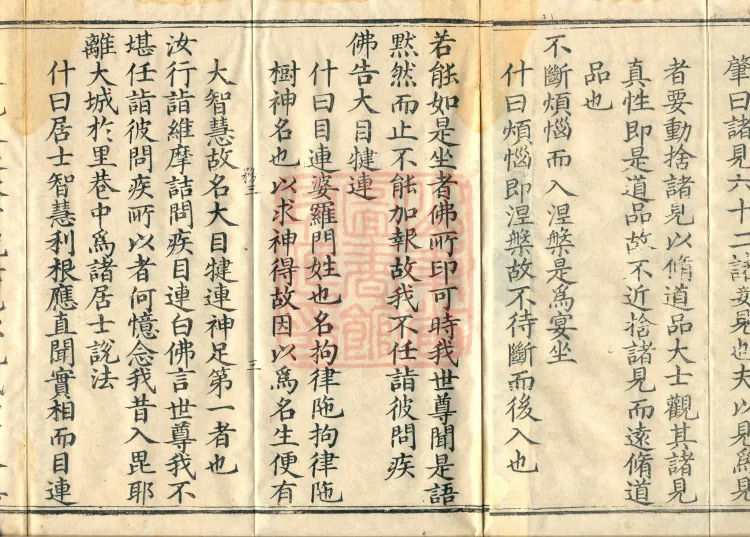 肇曰諸見六十二諸妄見也夫以見為見
者要動捨諸見以脩道品大士觀其諸見
真性即是道品故不近捨諸見而遠脩道
品也
不斷煩惱而入涅槃是為宴坐
什曰煩惱即涅槃故不待斷而後入也
若能如是坐者佛所印可時我世尊聞是語
黙然而止不能加報故我不任詣彼問疾
佛告大目犍連
什曰目連婆羅門姓也名拘律陁拘律陁
樹神名也以求神得故因以為名生便有
三
大智慧故名大目犍連神足第一者也
汝行詣維摩詰問疾目連白佛言世尊我不
堪任詣彼問疾所以者何憶念我昔入毘耶
離大城於里巷中為諸居士說法
什曰居士智慧利根應直聞實相而目連